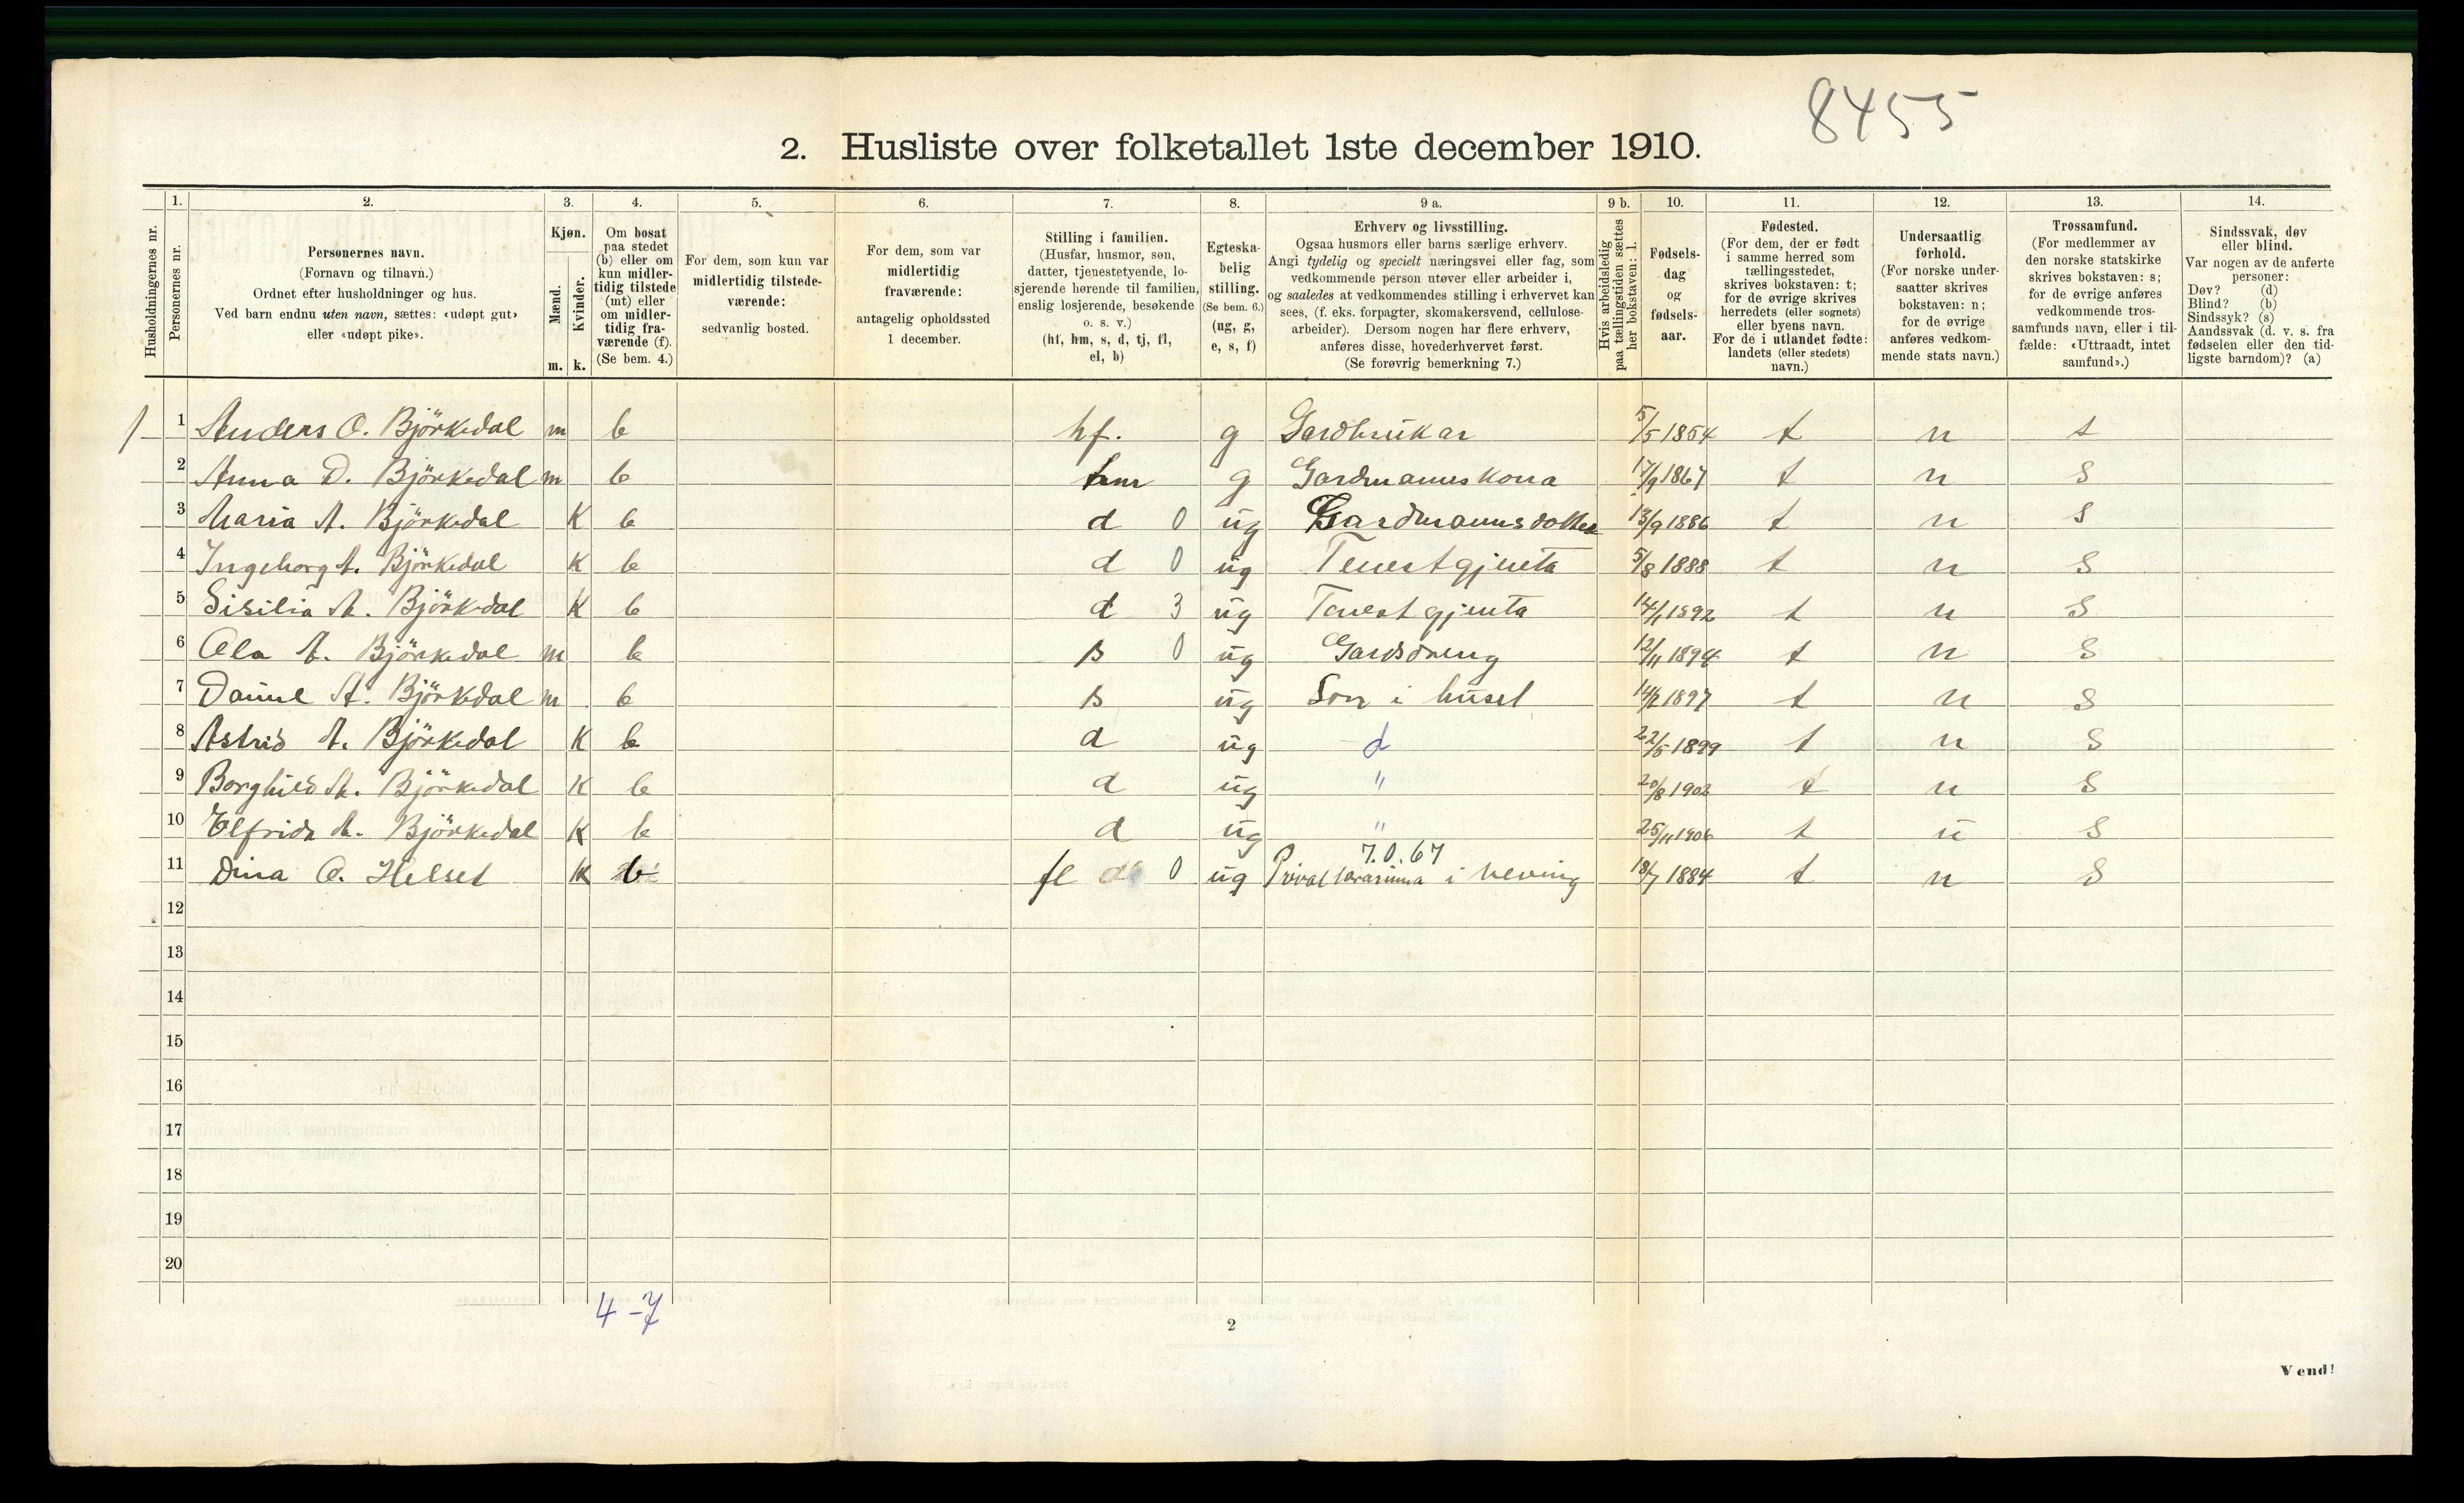 8455
2. Husliste over folketallet 1ste december 1910.
Husholdningernes nr.
1. Personernes nr.
2. Personernes navn.
(Fornavn og tilnavn.)
Ordnet efter husholdninger og hus.
Ved barn endnu uten navn, sættes: «udøpt gut»
eller «udøpt pike».
3. Kjøn.
Mænd. m.
Kvinder. k.
4. Om bosat
paa stedet
(b) eller om
kun midler-
tidig tilstede
(mt) eller
om midler-
tidig fra-
værende (f).
(Se bem. 4.)
5. For dem, som kun var
midlertidig tilstede-
værende:
sedvanlig bosted.
6. For dem, som var
midlertidig
fraværende:
antagelig opholdssted
1 december.
7. Stilling i familien.
(Husfar, husmor, søn,
datter, tjenestetyende, lo-
sjerende hørende til familien,
enslig losjerende, besøkende
o. s. v.)
(hf, hm, s, d, tj, fl,
el, b)
8. Egteska-
belig
stilling.
(Se bem. 6.)
(ug, g,
e, s, f)
9 a. Erhverv og livsstilling.
Ogsaa husmors eller barns særlige erhverv.
Angi tydelig og specielt næringsvei eller fag, som
vedkommende person utøver eller arbeider i,
og saaledes at vedkommendes stilling i erhvervet kan
sees, (f. eks. forpagter, skomakersvend, cellulose-
arbeider). Dersom nogen har flere erhverv,
anføres disse, hovederhvervet først.
(Se forøvrig bemerkning 7.)
9 b. Hvis arbeidsledig
paa tællingstiden sættes
her bokstaven: l.
10. Fødsels-
dag
og
fødsels-
aar.
11. Fødested.
(For dem, der er født
i samme herred som
tællingsstedet,
skrives bokstaven: t;
for de øvrige skrives
herredets (eller sognets)
eller byens navn.
For de i utlandet fødte:
landets (eller stedets)
navn.)
12. Undersaatlig
forhold.
(For norske under-
saatter skrives
bokstaven: n;
for de øvrige
anføres vedkom-
mende stats navn.)
13. Trossamfund.
(For medlemmer av
den norske statskirke
skrives bokstaven: s;
for de øvrige anføres
vedkommende tros-
samfunds navn, eller i til-
fælde: «Uttraadt, intet
samfund».)
14. Sindssvak, døv
eller blind.
Var nogen av de anførte
personer:
Døv? (d)
Blind? (b)
Sindssyk? (s)
Aandssvak (d. v. s. fra
fødselen eller den tid-
ligste barndom)? (a)
1 Anders O. Björkedal m b hf. g Gardbrukar 5/5 1854 t n s
2 Anna D. Björkedal m b hm g Gardmannskona 17/9 1867 t n s
3 Maria A. Björkedal K b d 0 ug Gardmannsdotter 13/9 1886 t n s
4 Ingeborg A. Björkedal K b d 0 ug Tenestgjenta 5/8 1888 t n s
5 Sisilia A. Björkedal K b d 3 ug Tenestgjenta 14/1 1892 t n s
6 Ola A. Björkedal m b s 0 ug Gardsdreng 12/11 1894 t n s
7 Daniel A. Björkedal m b s ug Son i huset 14/2 1897 t n s
8 Astrid A. Björkedal K b d ug d 22/5 1899 t n s
9 Borghild A. Björkedal K b d ug " 20/8 1902 t n s
10 Elfrida A. Björkedal K b d ug " 25/11 1906 t n s
7.0.67
11 Dina O. Helset K b fl 0 ug Privat lærarinna i veving 18/7 1884 t n s
12
13
14
15
16
17
18
19
20
4-7
2
Vend!